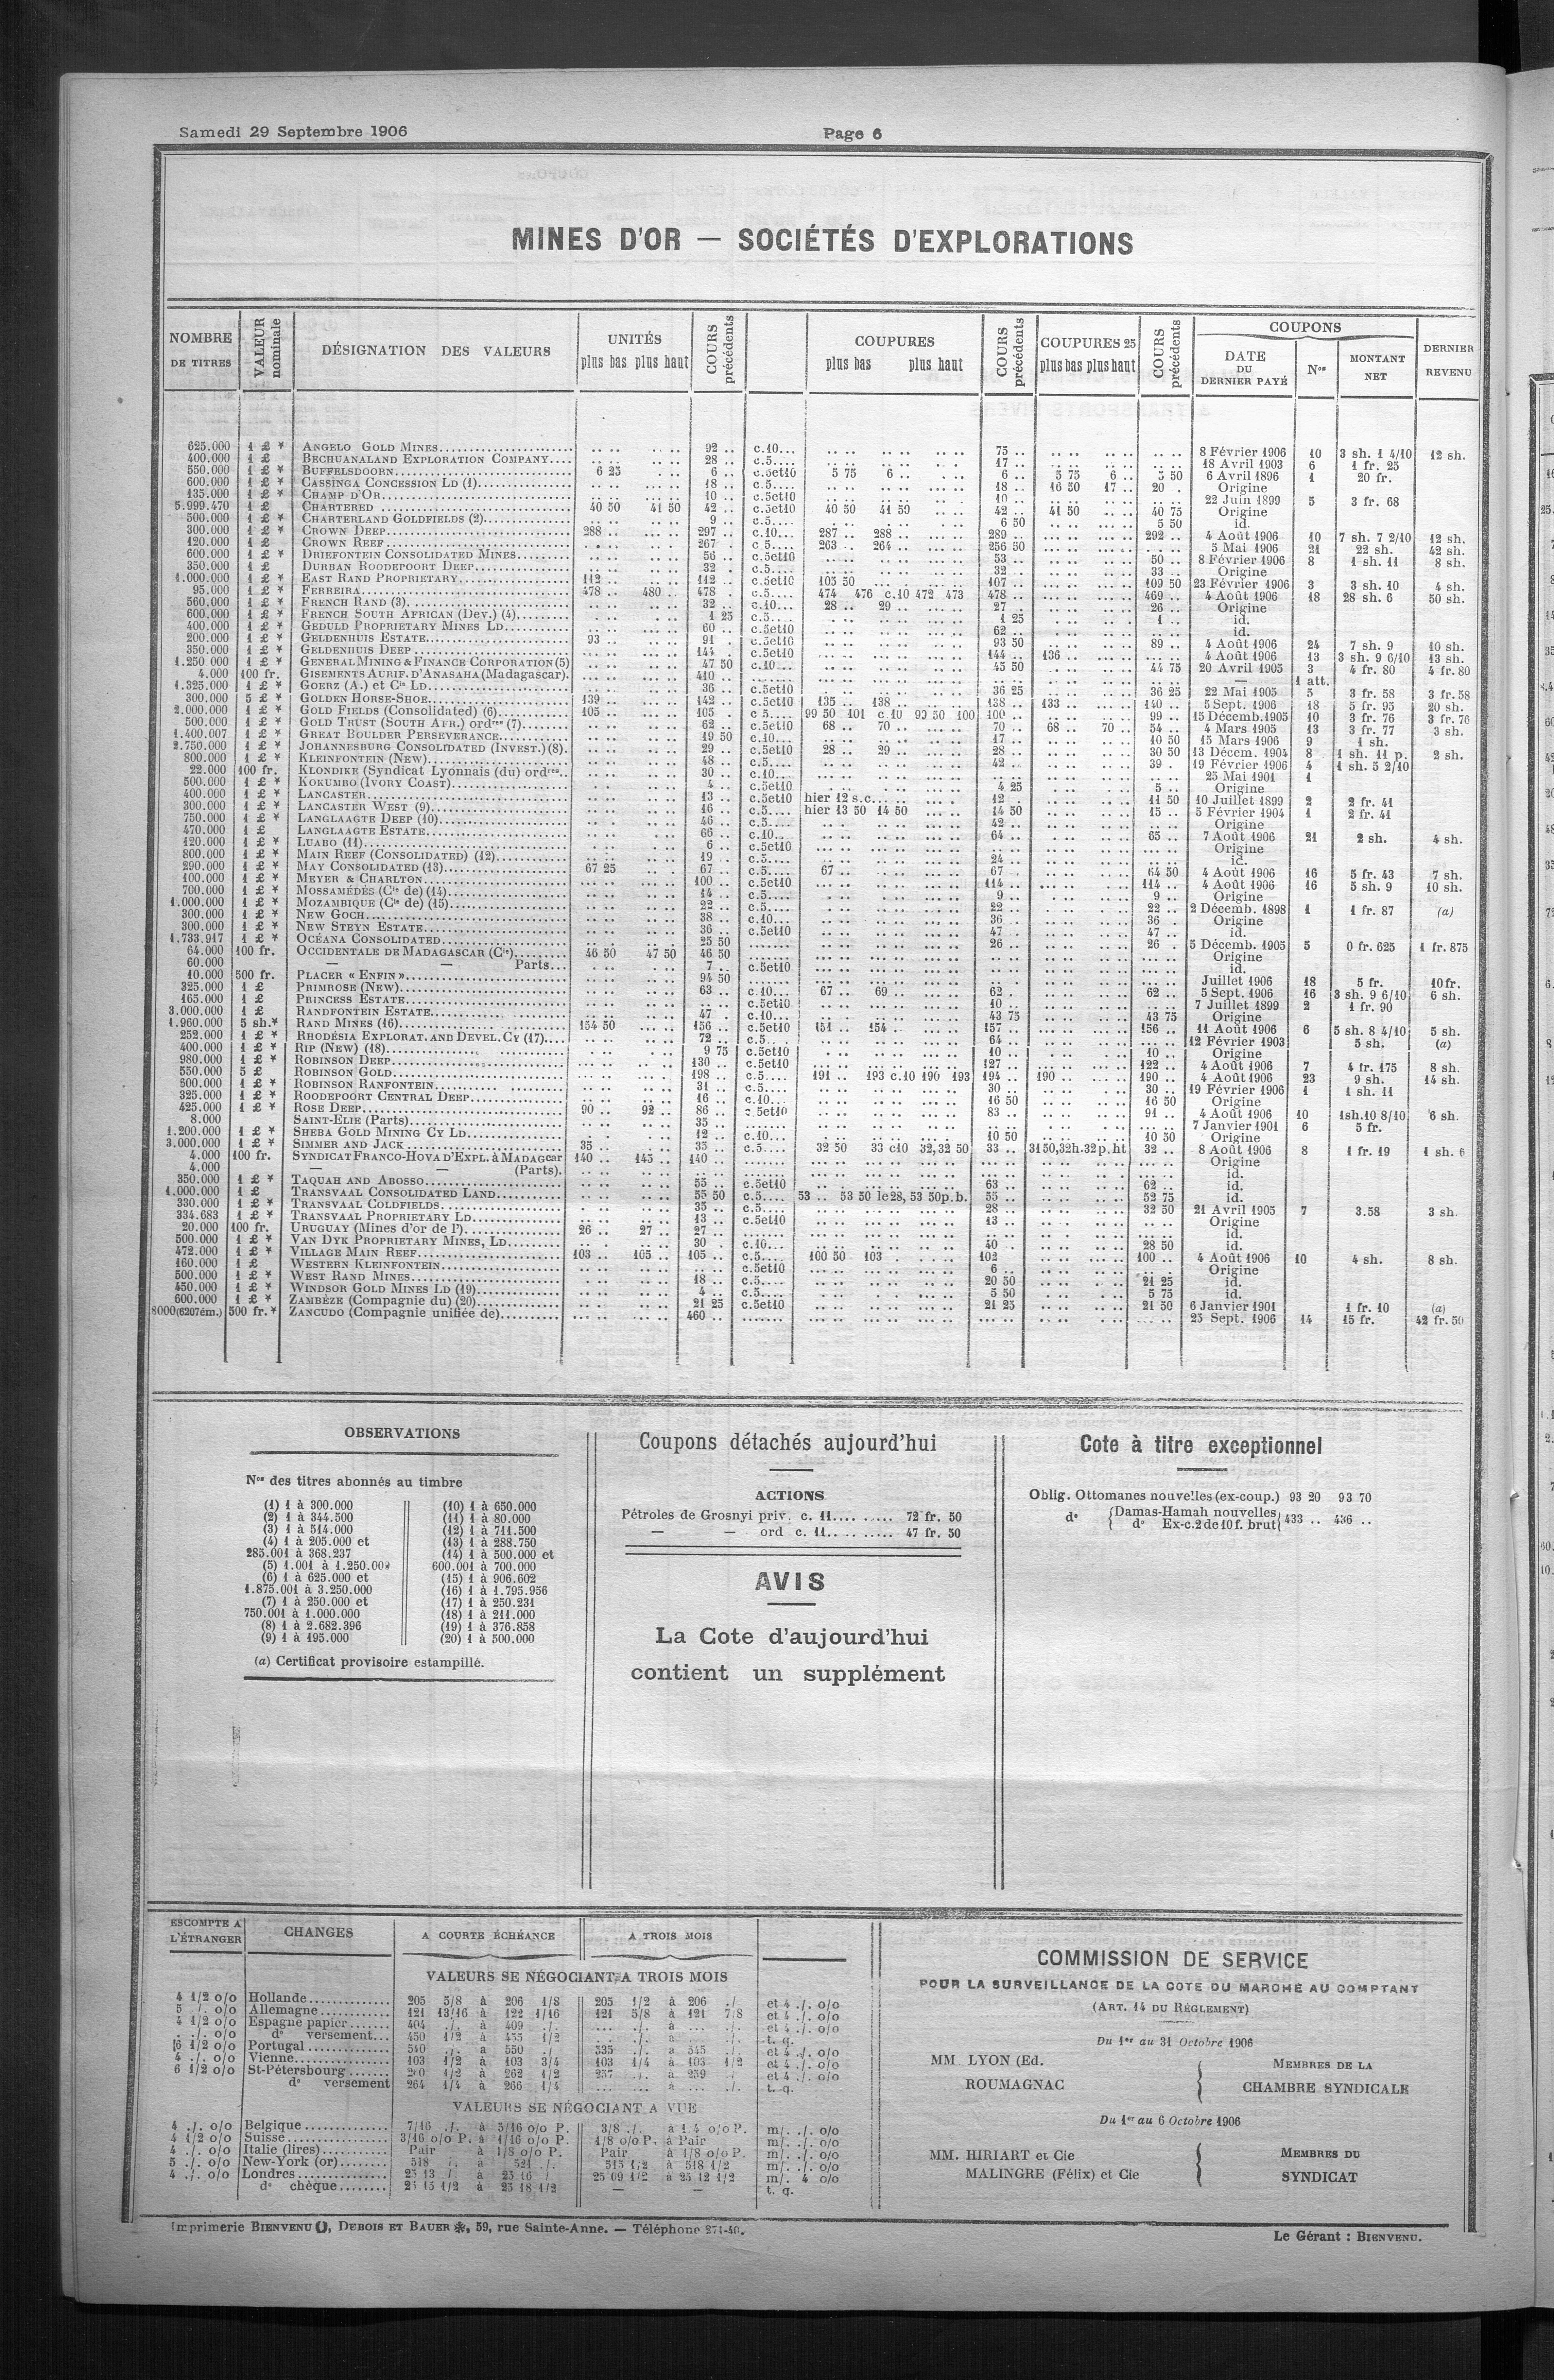 Samedi 29 Septembre 1906
Page 6
MINES D'OR — SOCIÉTÉS D'EXPLORATIONS
NOMBRE DE TITRES | VALEUR nominale | DÉSIGNATION DES VALEURS | UNITÉS plus bas plus haut | COURS précédents | COUPURES plus bas plus haut | COURS précédents | COUPURES 25 plus bas plus haut | COURS précédents | COUPONS DATE DU DERNIER PAYÉ | Nos | MONTANT NET | DERNIER REVENU
625.000 1 £ * ANGELO GOLD MINES 92 .. c.10 75 .. 8 Février 1906 10 3 sh. 1 4/10 12 sh.
400.000 1 £ BECHUANALAND EXPLORATION COMPANY 28 .. c.5 17 .. 18 Avril 1903 6 1 fr. 25
550.000 1 £ * BUFFELSDOORN 6 25 6 .. c.5et10 5 75 6 .. 6 .. 5 75 6 .. 5 50 6 Avril 1896 1 20 fr.
600.000 1 £ * CASSINGA CONCESSION LD (1) 18 .. c.5 18 .. 16 50 17 .. 20 . Origine
135.000 1 £ * CHAMP D'OR 10 .. c.5et10 10 .. 22 Juin 1899 5 3 fr. 68
5.999.470 1 £ CHARTERED 40 50 41 50 42 .. c.5et10 40 50 41 50 42 .. 41 50 40 75 Origine
500.000 1 £ * CHARTERLAND GOLDFIELDS (2) 9 .. c.5 6 50 5 50 id.
300.000 1 £ * CROWN DEEP 288 .. 297 .. c.10 287 .. 288 .. 289 .. 292 .. 4 Août 1906 10 7 sh. 7 2/10 12 sh.
120.000 1 £ CROWN REEF 267 . c 5 263 .. 264 .. 256 50 5 Mai 1906 21 22 sh. 42 sh.
600.000 1 £ * DRIEFONTEIN CONSOLIDATED MINES 56 .. c.5et10 53 .. 50 .. 8 Février 1906 8 1 sh. 11 8 sh.
350.000 1 £ DURBAN ROODEPOORT DEEP 32 . c.5 32 .. 33 .. Origine
1.000.000 1 £ * EAST RAND PROPRIETARY 112 .. 112 .. c.5et10 105 50 107 .. 109 50 23 Février 1906 3 3 sh. 10 4 sh.
95.000 1 £ * FERREIRA 478 .. 480 .. 478 . c.5 474 476 c.10 472 473 478 .. 469 .. 4 Août 1906 18 28 sh. 6 50 sh.
560.000 1 £ * FRENCH RAND (3) 32 .. c.10 28 .. 29 .. 27 . 26 .. Origine
600.000 1 £ * FRENCH SOUTH AFRICAN (Dev.) (4) 1 25 c.5 1 25 1 .. id.
400.000 1 £ * GEDULD PROPRIETARY MINES LD 60 .. c.5et10 62 .. id.
200.000 1 £ * GELDENHUIS ESTATE 93 .. 91 . c.5et10 93 50 89 .. 4 Août 1906 24 7 sh. 9 10 sh.
350.000 1 £ * GELDENHUIS DEEP 144 . c.5et10 144 .. 136 .. 4 Août 1906 13 3 sh. 9 6/10 13 sh.
1.250 000 1 £ * GENERAL MINING & FINANCE CORPORATION (5) 47 50 c.10 45 50 44 75 20 Avril 1905 3 4 fr. 80 4 fr. 80
4.000 100 fr. GISEMENTS AURIF. D'ANASAHA (Madagascar). 410 .. — 1 att.
1.325.000 1 £ * GOERZ (A.) et Cie LD 36 .. c.5et10 36 25 36 25 22 Mai 1905 5 3 fr. 58 3 fr. 58
300.000 5 £ * GOLDEN HORSE-SHOE 139 .. 142 .. c.5et10 135 .. 138 .. 138 .. 133 .. 140 .. 5 Sept. 1906 18 5 fr. 95 20 sh.
2.000.000 1 £ * GOLD FIELDS (Consolidated) (6) 105 .. 105 c 5 99 50 101 c.10 99 50 100 100 .. 99 .. 15 Décemb. 1905 10 3 fr. 76 3 fr. 76
500.000 1 £ * GOLD TRUST (SOUTH AFR.) ordres (7) 62 .. c.5et10 68 .. 70 .. 70 .. 68 .. 70 .. 54 .. 4 Mars 1905 13 3 fr. 77 3 sh.
1.400.007 1 £ * GREAT BOULDER PERSEVERANCE 19 50 c.10 17 .. 10 50 15 Mars 1906 9 1 sh.
2.750.000 1 £ * JOHANNESBURG CONSOLIDATED (INVEST.) (8). 29 .. c.5et10 28 .. 29 .. 28 .. 30 50 13 Décem. 1904 8 1 sh. 11 p. 2 sh.
800.000 1 £ * KLEINFONTEIN (NEW) 48 .. c.5 42 .. 39 . 19 Février 1906 4 1 sh. 5 2/10
22.000 100 fr. KLONDIKE (Syndicat Lyonnais (du) ordres 30 .. c.10 25 Mai 1901 1
500.000 1 £ * KOKUMBO (IVORY COAST) 4 .. c.5et10 4 25 5 .. Origine
400.000 1 £ * LANCASTER 13 .. c.5et10 hier 12 s.c. 12 . 11 50 10 Juillet 1899 2 2 fr. 41
300.000 1 £ * LANCASTER WEST (9) 16 .. c.5 hier 13 50 14 50 14 50 15 .. 5 Février 1904 1 2 fr. 41
750.000 1 £ * LANGLAAGTE DEEP (10) 46 .. c.5 42 .. Origine
470.000 1 £ LANGLAAGTE ESTATE 66 .. c.10 64 .. 65 .. 7 Août 1906 21 2 sh. 4 sh.
120.000 1 £ * LUABO (11) 6 .. c.5et10 Origine
800.000 1 £ * MAIN REEF (CONSOLIDATED) (12) 19 .. c.5 24 .. id.
290.000 1 £ * MAY CONSOLIDATED (13) 67 25 67 .. c.5 67 .. 67 . 64 50 4 Août 1906 16 5 fr. 43 7 sh.
100.000 1 £ * MEYER & CHARLTON 100 .. c.5et10 114 .. 114 .. 4 Août 1906 16 5 sh. 9 10 sh.
700.000 1 £ * MOSSAMÉDÈS (Cie de) (14) 14 .. c.5 9 .. 9 .. Origine
1.000.000 1 £ * MOZAMBIQUE (Cie de) (15) 22 .. c.5 22 .. 22 .. 2 Décemb. 1898 1 1 fr. 87 (a)
300.000 1 £ * NEW GOCH 38 .. c.10 36 .. 36 .. Origine
300.000 1 £ * NEW STEYN ESTATE 36 .. c.5et10 47 . 47 .. id.
1.733.917 1 £ * OCÉANA CONSOLIDATED 25 50 26 .. 26 . 5 Décemb. 1905 5 0 fr. 625 1 fr. 875
64.000 100 fr. OCCIDENTALE DE MADAGASCAR (Cie) 46 50 47 50 46 50 Origine
60.000 — — Parts 7 .. c.5et10 id.
10.000 500 fr. PLACER « ENFIN » 94 50 Juillet 1906 18 5 fr. 10 fr.
325.000 1 £ PRIMROSE (NEW) 63 .. c.10 67 .. 69 .. 62 . 62 .. 5 Sept. 1906 16 3 sh. 9 6/10 6 sh.
165.000 1 £ PRINCESS ESTATE c.5et10 10 .. 7 Juillet 1899 2 1 fr. 90
3.000.000 1 £ RANDFONTEIN ESTATE 47 . c.10 43 75 43 75 Origine
1.960.000 5 sh.* RAND MINES (16) 154 50 156 .. c.5et10 151 .. 154 .. 157 .. 156 .. 11 Août 1906 6 5 sh. 8 4/10 5 sh.
252.000 1 £ * RHODÉSIA EXPLORAT. AND DEVEL. CY (17) 72 .. c.5 64 .. 12 Février 1903 5 sh. (a)
400.000 1 £ * RIP (NEW) (18) 9 75 c.5et10 10 .. 10 .. Origine
980.000 1 £ * ROBINSON DEEP 130 .. c.5et10 127 .. 122 .. 4 Août 1906 7 4 fr. 175 8 sh.
550.000 5 £ ROBINSON GOLD 198 .. c.5 191 .. 193 c.10 190 193 194 .. 190 .. 190 .. 4 Août 1906 23 9 sh. 14 sh.
800.000 1 £ * ROBINSON RANFONTEIN 31 .. c.5 30 .. 30 .. 19 Février 1906 1 1 sh. 11
325.000 1 £ * ROODEPOORT CENTRAL DEEP 16 .. c.10 16 50 16 50 Origine
425.000 1 £ * ROSE DEEP 90 .. 92 .. 86 .. c.5et10 83 .. 91 .. 4 Août 1906 10 1sh.10 8/10 6 sh.
8.000 SAINT-ELIE (Parts) 35 .. 7 Janvier 1901 6 5 fr.
1.200.000 1 £ * SHEBA GOLD MINING CY LD 12 .. c.10 10 50 10 50 Origine
3.000.000 1 £ * SIMMER AND JACK 35 .. 35 .. c.5 32 50 33 c10 32,32 50 33 .. 31 50,32h.32p.ht 32 .. 8 Août 1906 8 1 fr. 19 1 sh. 6
4.000 100 fr. SYNDICAT FRANCO-HOVA D'EXPL. à MADAGcar 140 .. 145 .. 140 .. Origine
4.000 — — (Parts). id.
350.000 1 £ * TAQUAH AND ABOSSO 55 .. c.5et10 63 .. 62 .. id.
1.000.000 1 £ TRANSVAAL CONSOLIDATED LAND 55 50 c.5 53 .. 53 50 le 28, 53 50 p.b. 55 .. 52 75 id.
330.000 1 £ * TRANSVAAL COLDFIELDS 35 .. c.5 28 .. 32 50 21 Avril 1905 7 3.58 3 sh.
334.683 1 £ * TRANSVAAL PROPRIETARY LD 13 .. c.5et10 13 .. Origine
20.000 100 fr. URUGUAY (Mines d'or de l') 26 .. 27 .. 27 .. id.
500.000 1 £ * VAN DYK PROPRIETARY MINES, LD 30 . c.10 40 .. 28 50 id.
472.000 1 £ * VILLAGE MAIN REEF 103 .. 105 .. 105 .. c.5 100 50 103 102 100 .. 4 Août 1906 10 4 sh. 8 sh.
160.000 1 £ WESTERN KLEINFONTEIN c.5et10 6 .. Origine
500.000 1 £ * WEST RAND MINES 18 .. c.5 20 50 21 25 id.
450.000 1 £ * WINDSOR GOLD MINES LD (19) 4 .. c.5 5 50 5 75 id.
600.000 1 £ * ZAMBÈZE (Compagnie du) (20) 21 25 c.5et10 21 25 21 50 6 Janvier 1901 1 fr. 10 (a)
8000(6207ém.) 500 fr.* ZANCUDO (Compagnie unifiée de) 460 .. 25 Sept. 1906 14 15 fr. 42 fr. 50
OBSERVATIONS
Nos des titres abonnés au timbre
(1) 1 à 300.000
(2) 1 à 344.500
(3) 1 à 514.000
(4) 1 à 205.000 et
285.001 à 368.237
(5) 1.001 à 1.250.000
(6) 1 à 625.000 et
1.875.001 à 3.250.000
(7) 1 à 250.000 et
750.001 à 1.000.000
(8) 1 à 2.682.396
(9) 1 à 195.000
(10) 1 à 650.000
(11) 1 à 80.000
(12) 1 à 711.500
(13) 1 à 288.750
(14) 1 à 500.000 et
600.001 à 700.000
(15) 1 à 906.602
(16) 1 à 1.795.956
(17) 1 à 250.231
(18) 1 à 211.000
(19) 1 à 376.858
(20) 1 à 500.000
(a) Certificat provisoire estampillé.
Coupons détachés aujourd'hui
ACTIONS
Pétroles de Grosnyi priv. c. 11 72 fr. 50
— — ord c. 11 47 fr. 50
AVIS
La Cote d'aujourd'hui
contient un supplément
Cote à titre exceptionnel
Oblig. Ottomanes nouvelles (ex-coup.) 93 20 93 70
do Damas-Hamah nouvelles
do Ex-c.2 de 10 f. brut 433 .. 436 ..
ESCOMPTE A L'ÉTRANGER | CHANGES | A COURTE ÉCHÉANCE | A TROIS MOIS
VALEURS SE NÉGOCIANT A TROIS MOIS
4 1/2 o/o Hollande 205 5/8 à 206 1/8 205 1/2 à 206 ./. et 4 ./. o/o
5 ./. o/o Allemagne 121 13/16 à 122 1/16 121 5/8 à 121 7/8 et 4 ./. o/o
4 1/2 o/o Espagne papier 404 ./. à 409 ./. et 4 ./. o/o
. ./. o/o do versement 450 1/2 à 455 1/2 t. q.
6 1/2 o/o Portugal 540 ./. à 550 ./. 535 ./. à 545 ./. et 4 ./. o/o
4 ./. o/o Vienne 103 1/2 à 103 3/4 103 1/4 à 103 1/2 et 4 ./. o/o
6 1/2 o/o St-Pétersbourg 260 1/2 à 262 1/2 257 ./. à 259 ./. et 4 ./. o/o
do versement 264 1/4 à 266 1/4 t. q.
VALEURS SE NÉGOCIANT A VUE
4 ./. o/o Belgique 7/16 ./. à 5/16 o/o P. 3/8 ./. à 1/4 o/o P. m/. ./. o/o
4 1/2 o/o Suisse 3/16 o/o P. à 1/16 o/o P. 1/8 o/o P. à Pair m/. ./. o/o
4 ./. o/o Italie (lires) Pair à 1/8 o/o P. Pair à 1/8 o/o P. m/. ./. o/o
5 ./. o/o New-York (or) 518 ./. à 521 ./. 515 1/2 à 518 1/2 m/. ./. o/o
4 ./. o/o Londres 25 13 ./. à 25 16 ./. 25 09 1/2 à 25 12 1/2 m/. 4 o/o
do chèque 25 15 1/2 à 25 18 1/2 — — t. q.
COMMISSION DE SERVICE
POUR LA SURVEILLANCE DE LA COTE DU MARCHÉ AU COMPTANT
(ART. 14 DU RÈGLEMENT)
Du 1er au 31 Octobre 1906
MM LYON (Ed.
ROUMAGNAC
MEMBRES DE LA
CHAMBRE SYNDICALE
Du 1er au 6 Octobre 1906
MM. HIRIART et Cie
MALINGRE (Félix) et Cie
MEMBRES DU
SYNDICAT
Imprimerie BIENVENU, DEBOIS ET BAUER, 59, rue Sainte-Anne. — Téléphone 271-40.
Le Gérant : BIENVENU.